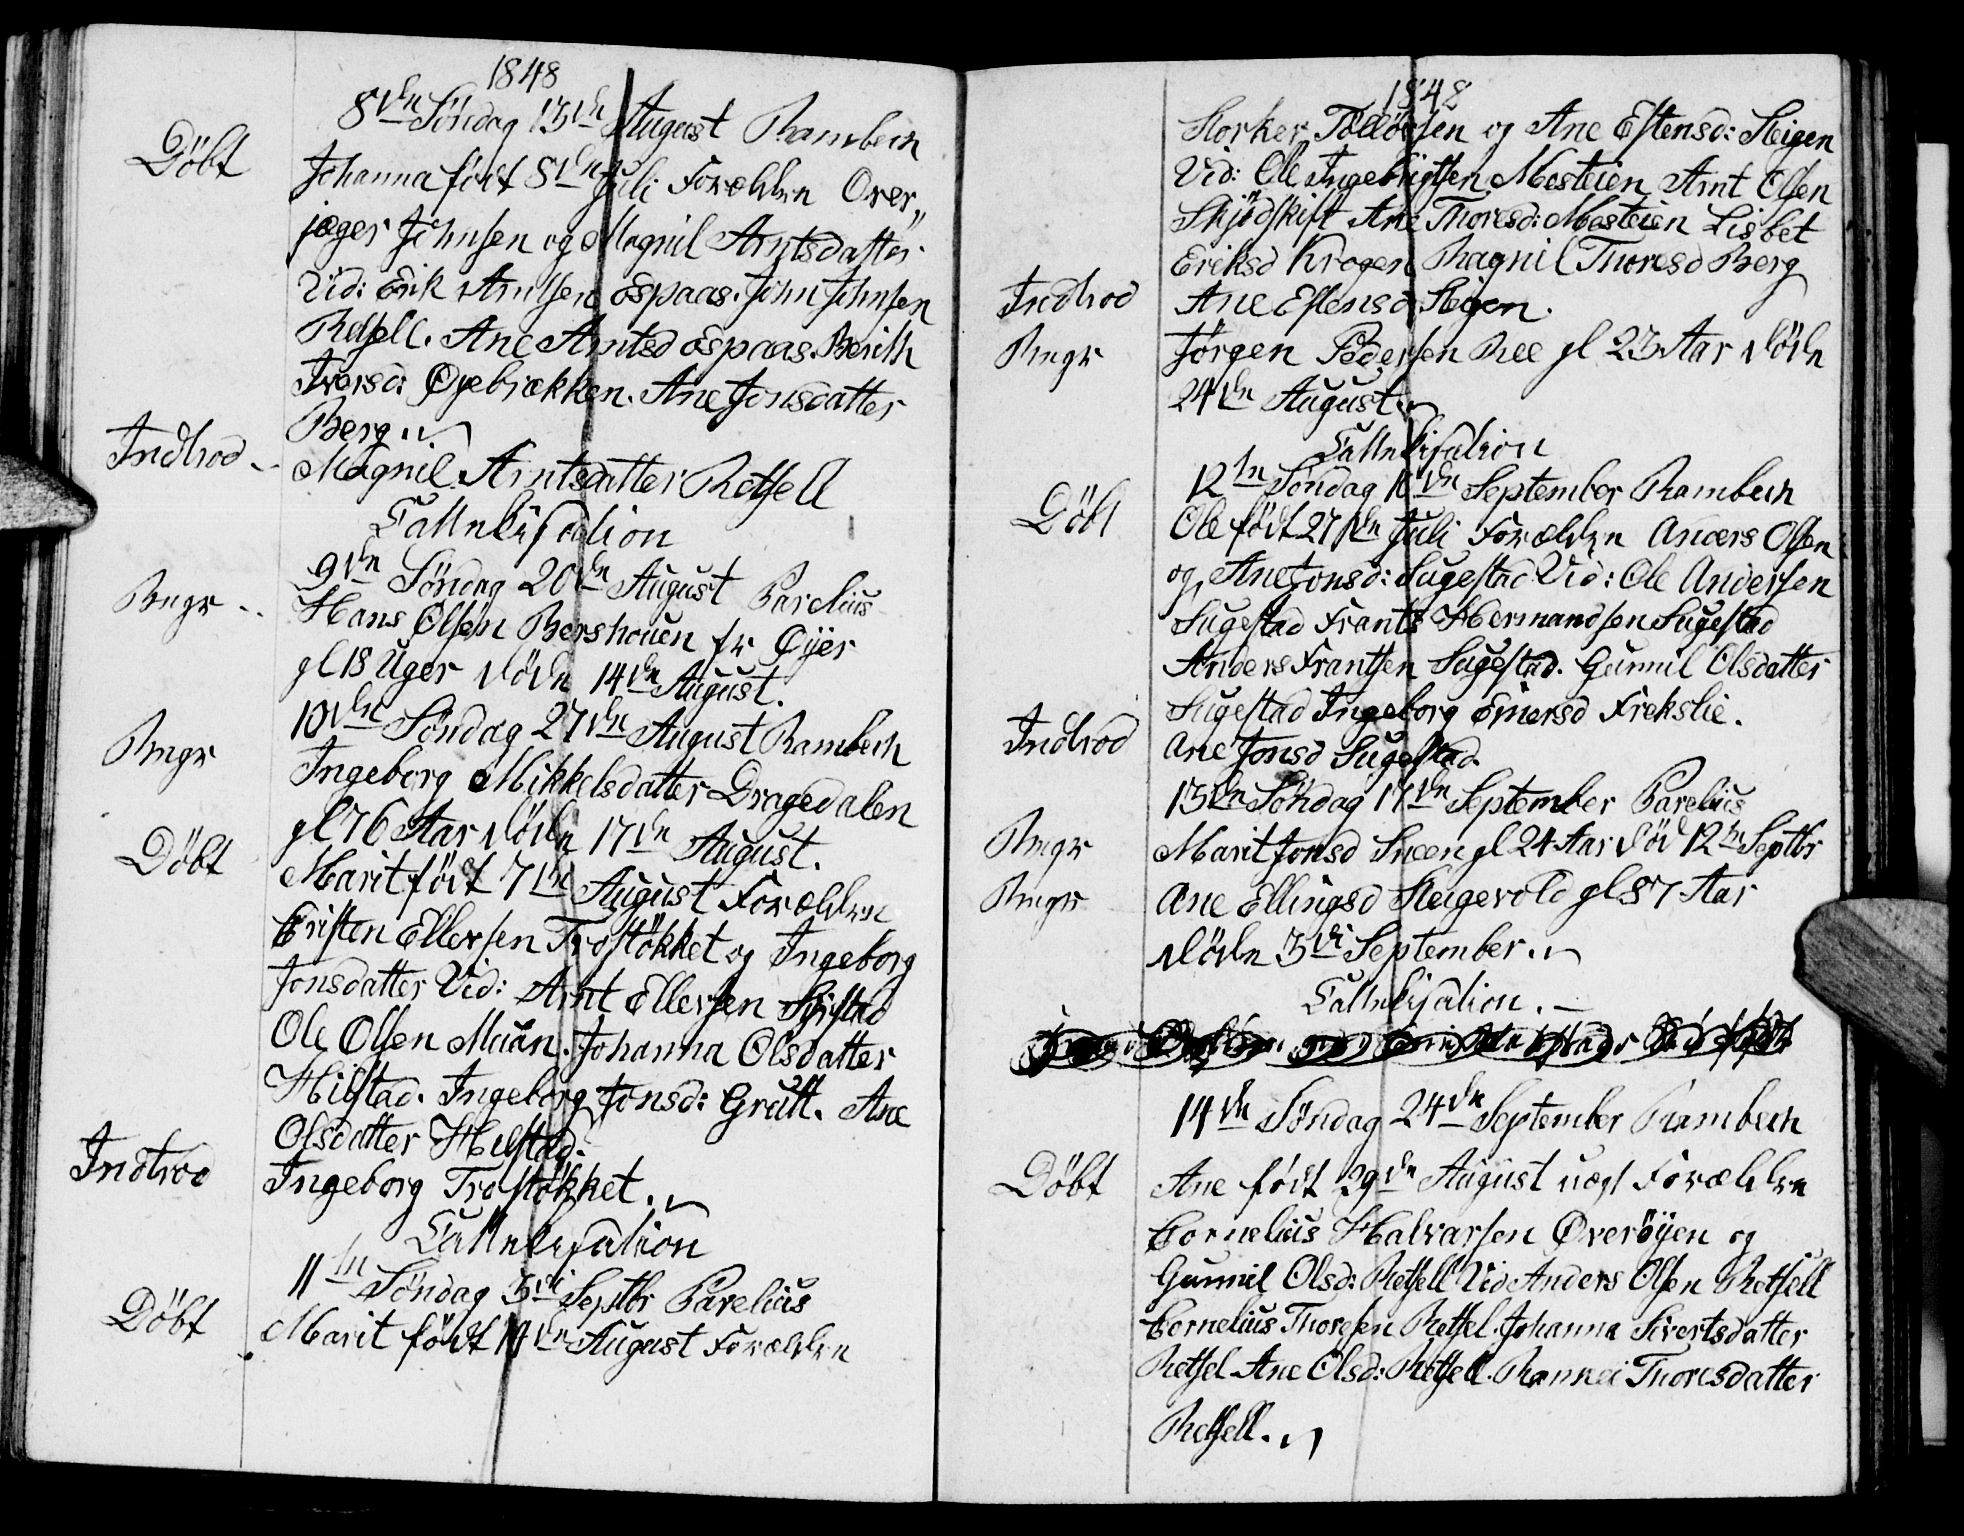 1848
8de Söndag 13de August Rambech
Döbt Johanna födt 8de Juli Forældre Over„
jæger Johnsen og Magnil Arntsdatter
Vid: Erik Arntsen Espaas. John Johnsen
Retsell. Ane Arntsd Espaas. Berith
Iversd: Øyebrækken. Ane Jonsdatter
Berg.
Indtrod Magnil Arntsdatter Retsell
Cattekisation
9de Söndag 20de August Parelius
Bngr Hans Olsen Bershouen fr Øÿer
gl 18 Uger döde 14de August.
10de Söndag 27de August Rambech
Bngr Ingeborg Mikkelsdatter Dragedalen
gl 76 Aar döde 17de August.
Döbt Marit födt 7de August Forældre
Cristen Ellevsen Trostökket og Ingeborg
Jonsdatter Vid: Arnt Ellevsen
Ole Olsen Muan. Johanna Olsdatter
Hilstad. Ingeborg Jonsd: Grutt. Ane
Olsdatter Hilstad.
Indtrod Ingeborg Trostökket.
Cattekisation
11te Söndag 3di Septbr Parelius
Döbt Marit födt August Forældre
1848
Storker Tollövsen og Ane Estensd: Steigen
Vid: Ole Ingebrigtsen Mesteien Arnt Olsen
Skjödskift Ane Thoresd: Mesteien Lisbet
Eriksd Krogen Ragnil Thoresd Berg
Indtrod Ane Estensd Steigen.
Bngr Jörgen Pedersen Ree gl 23 Aar döde
24de August
Cattekisation
12te Söndag 10de September Rambech
Döbt Ole födt 27de Juli Forældre Anders Olsen
og Ane Jonsd: Sugestad Vid: Ole Andersen
Sugestad Frants Hermandsen Sugestad
Anders Frantsen Sugestad. Gunnil Olsdatter
Sugestad Ingeborg Einersd Frekslie.
Indtrod Ane Jonsd Sugestad.
13de Söndag 17de September Parelius
Bngr Marit Jonsd Sneen gl 24 Aar död 12te Septbr
Bngr Ane Ellingsd Steigevold gl 87 Aar
döde 3di September.
Cattekisation.
14de Söndag 24de September Rambech
Döbt Ane födt 29de August uægt Forældre
Cornelius Halvarsen Överöÿen og
Gunnil Olsd: Retsell Vid Anders Olsen Retsell
Cornelius Thoresen Retsel. Johanna Sivertsdatter
Retsel Ane Olsd: Retsell. Rannei Thoresdatter
Retsell.